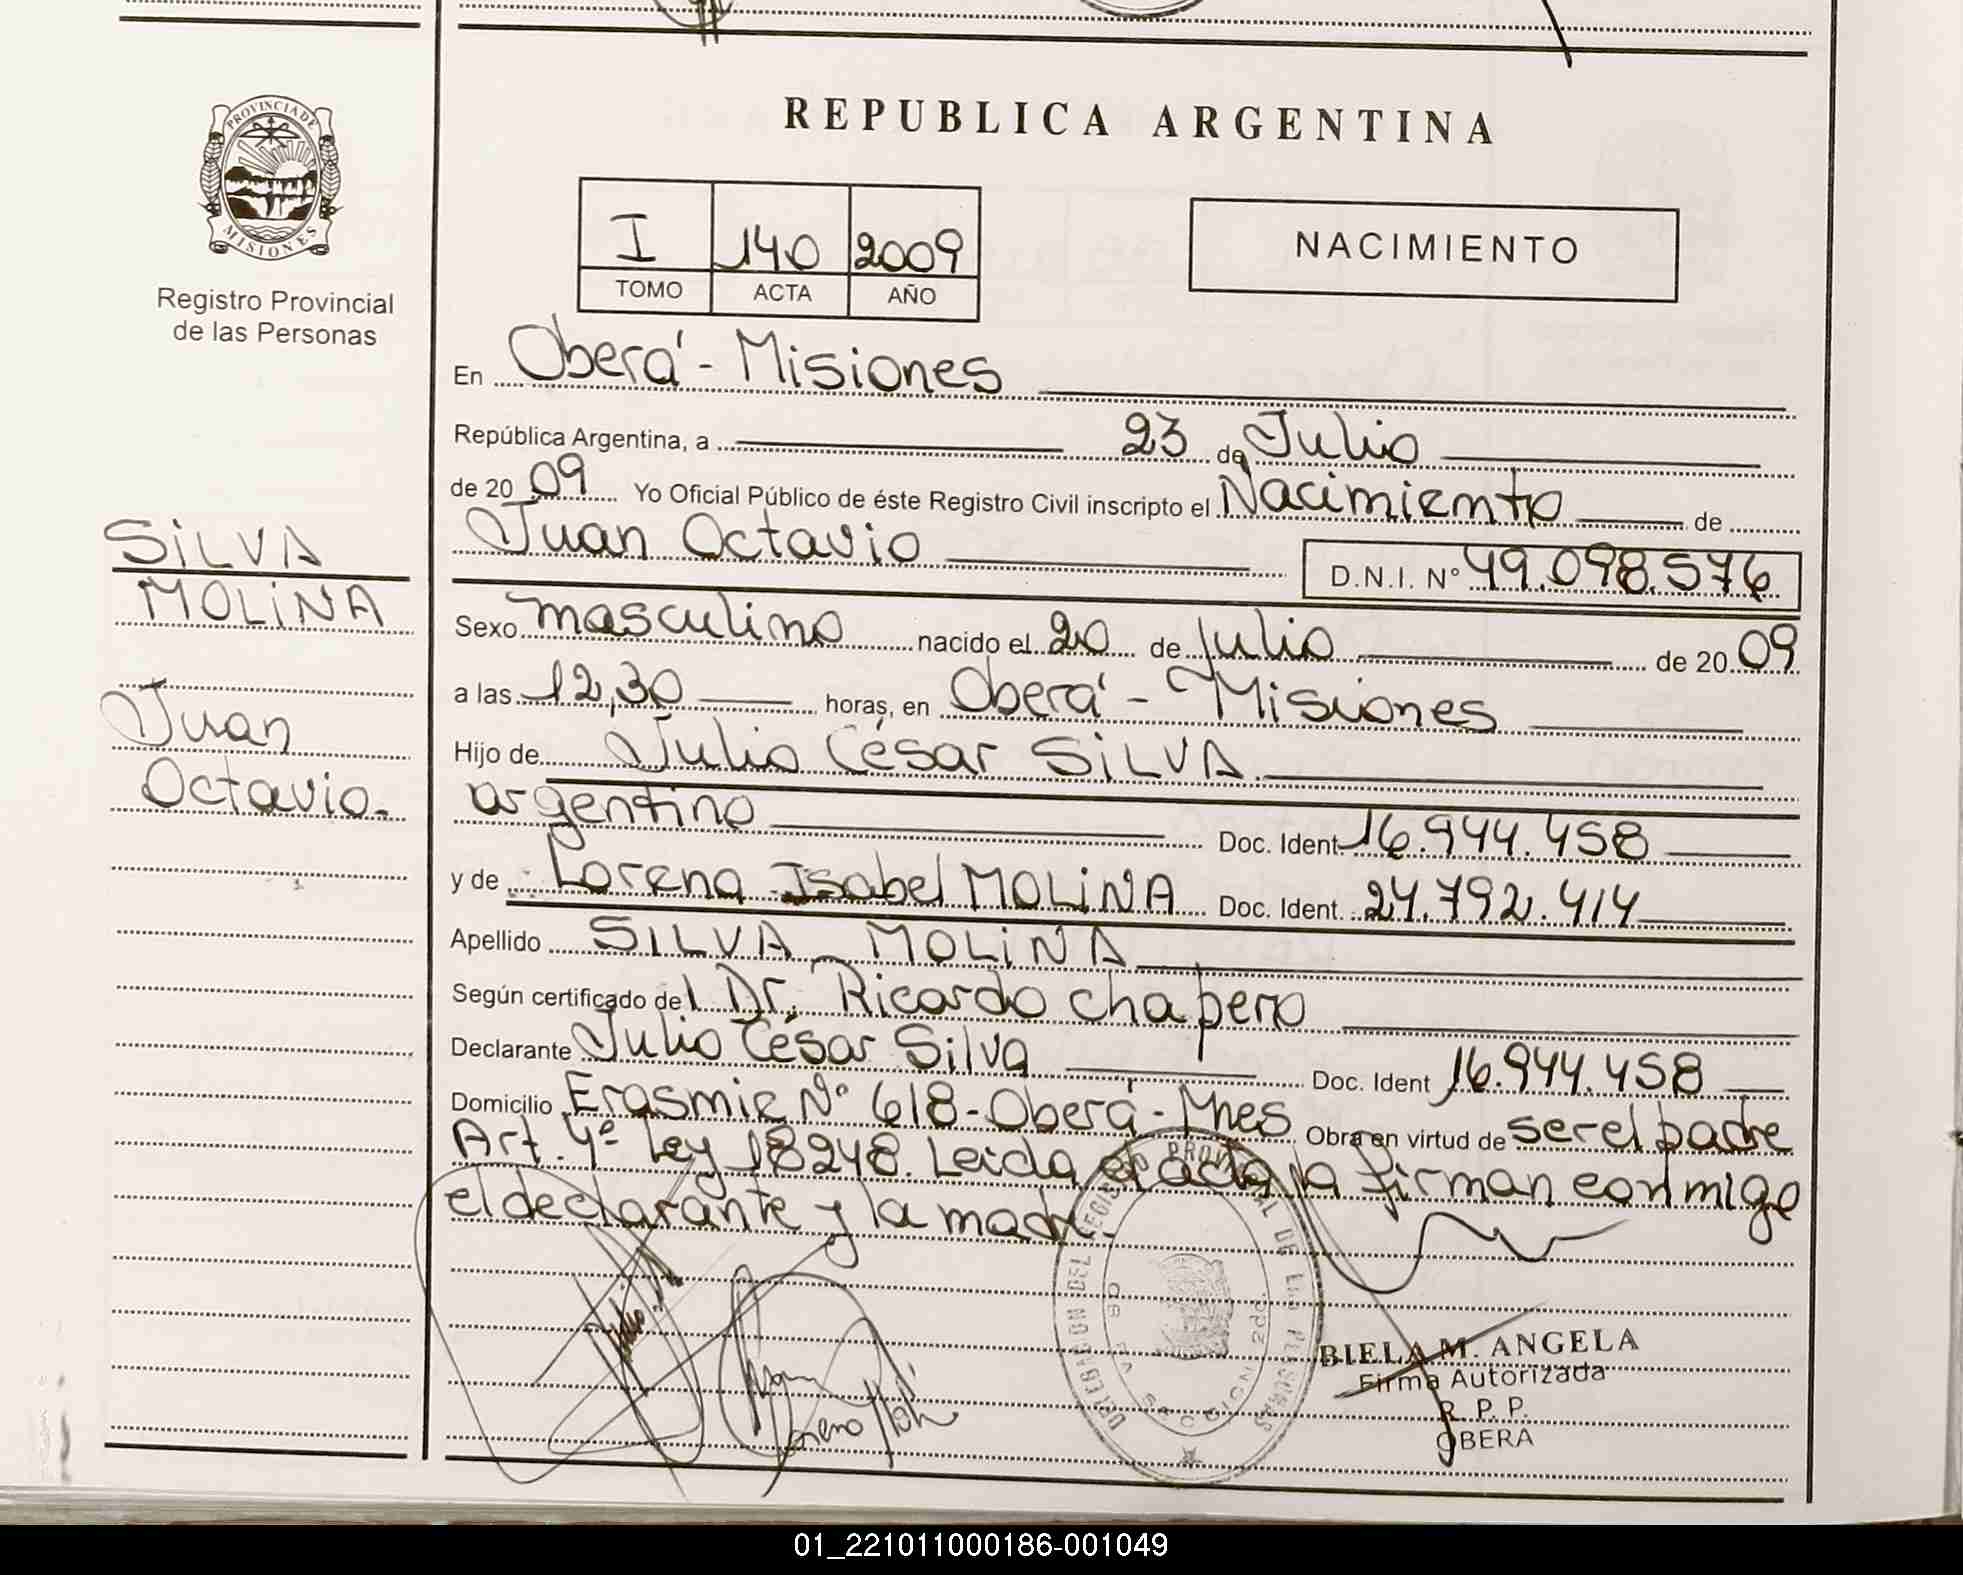 REPUBLICA ARGENTINA
PROVINCIA DE
MISIONES
Registro Provincial
de las Personas
I 140 2009
TOMO ACTA AÑO
NACIMIENTO
En Oberá - Misiones
República Argentina, a 23 de Julio
de 20 09 Yo Oficial Público de éste Registro Civil inscripto el Nacimiento de
Juan Octavio D.N.I. Nº 49.098.576
SILVA
MOLINA
Juan
Octavio.
Sexo masculino nacido el 20 de Julio de 20 09
a las 12,30 horas, en Oberá - Misiones
Hijo de Julio César SILVA
argentino Doc. Ident. 16.944.458
y de Lorena Isabel MOLINA Doc. Ident. 24.792.414
Apellido SILVA MOLINA
Según certificado del Dr. Ricardo Chapero
Declarante Julio César Silva Doc. Ident 16.944.458
Domicilio Erasmie Nº 618 - Oberá - Mnes Obra en virtud de ser el padre
Art. 4º Ley 18248. Leida el acta la firman conmigo
el declarante y la madre.
BIELA M. ANGELA
Firma Autorizada
R. P. P.
OBERA
01_221011000186-001049